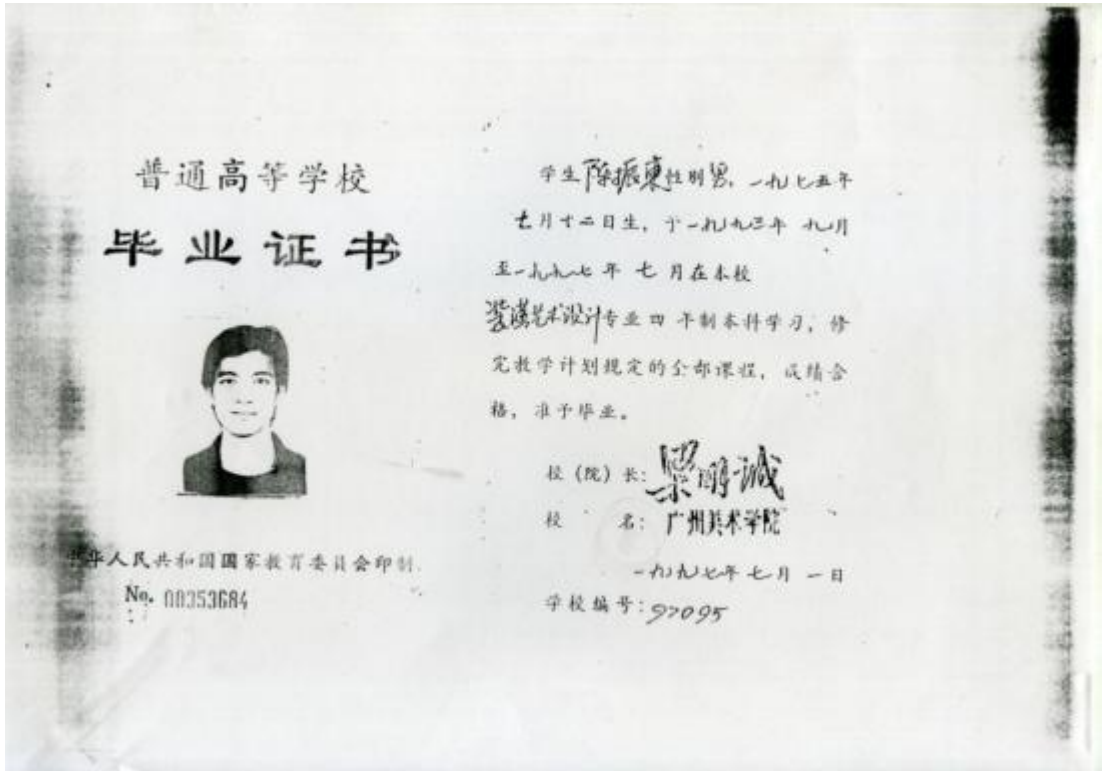 普通高等学校
毕业证书
中华人民共和国国家教育委员会印制
No. 00353684
学生陈振东性别男，一九七五年
七月十二日生，于一九九三年 九月
至一九九七年 七 月在本校
装潢艺术设计专业 四 年制本科学习，修
完教学计划规定的全部课程，成绩合
格，准予毕业。
校（院）长：梁明诚
校 名：广州美术学院
一九九七年七月 一日
学校编号：97095